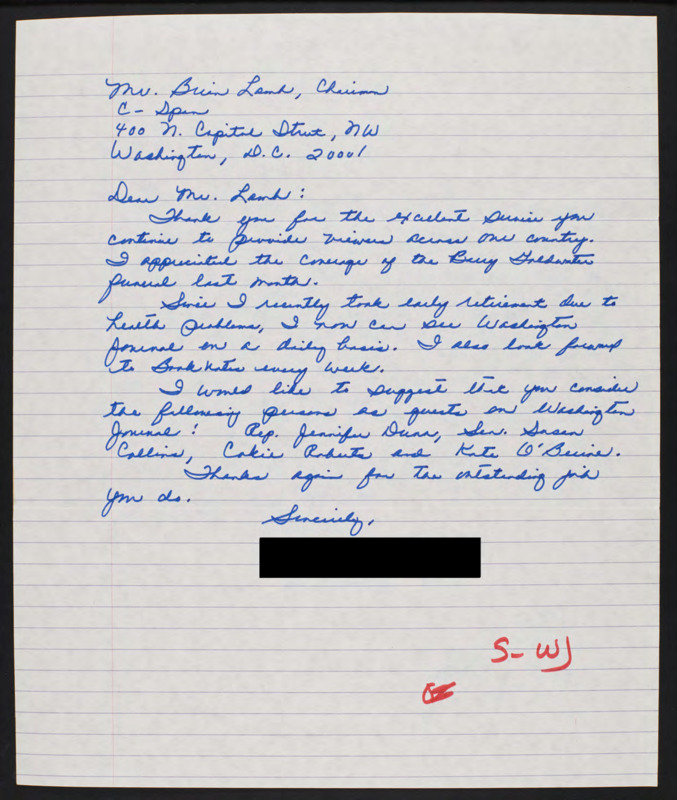 Mr. Brian Lamb, Chairman
C-Span
400 N. Capitol Street, NW
Washington, D.C. 20001
Dear Mr. Lamb:
Thank you for the excellent service you
continue to provide viewers across our country.
I appreciated the coverage of the Barry Goldwater
funeral last month.
Since I recently took early retirement due to
health problems, I now can see Washington
Journal on a daily basis. I also look forward
to Booknotes every week.
I would like to suggest that you consider
the following persons as guests on Washington
Journal: Rep. Jennifer Dunn, Sen. Susan
Collins, Cokie Roberts and Kate O'Beirne.
Thanks again for the outstanding job
you do.
Sincerely,
S-WJ